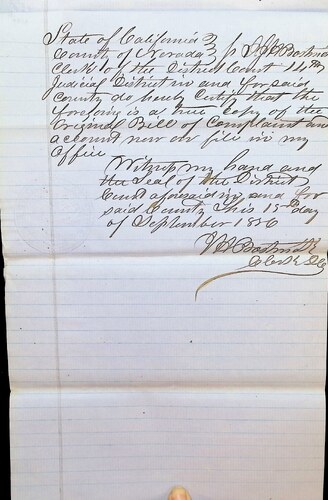 State of California }
County of Nevada } ss I J H Bostwick
Clerk of the District Court 14th
Judicial District in and for said
County do hereby Certify that the
foregoing is a true Copy of the
Original Bill of Complaint and
account now on file in my
Office
Witness my hand and
the Seal of the District
Court aforesaid in and for
said County this 15th day
of September 1856
Bostwick
Clerk D C